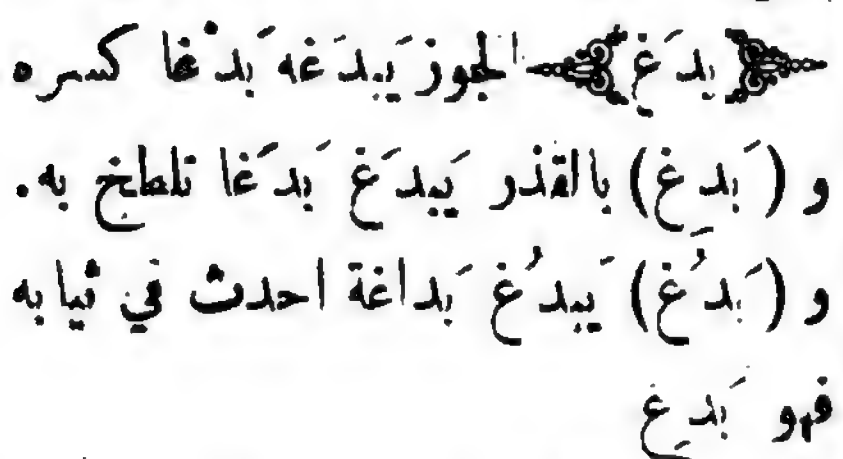 ﴿بدَغ﴾ الجوز يَبدَغه بَدْغا كسره
و (بَدِغ) بالقذر يَبدَغ بَدَغا تلطخ به.
و (بَدُغ) يَبدُغ بَداغة احدث في ثيابه
فهو بَدِغ